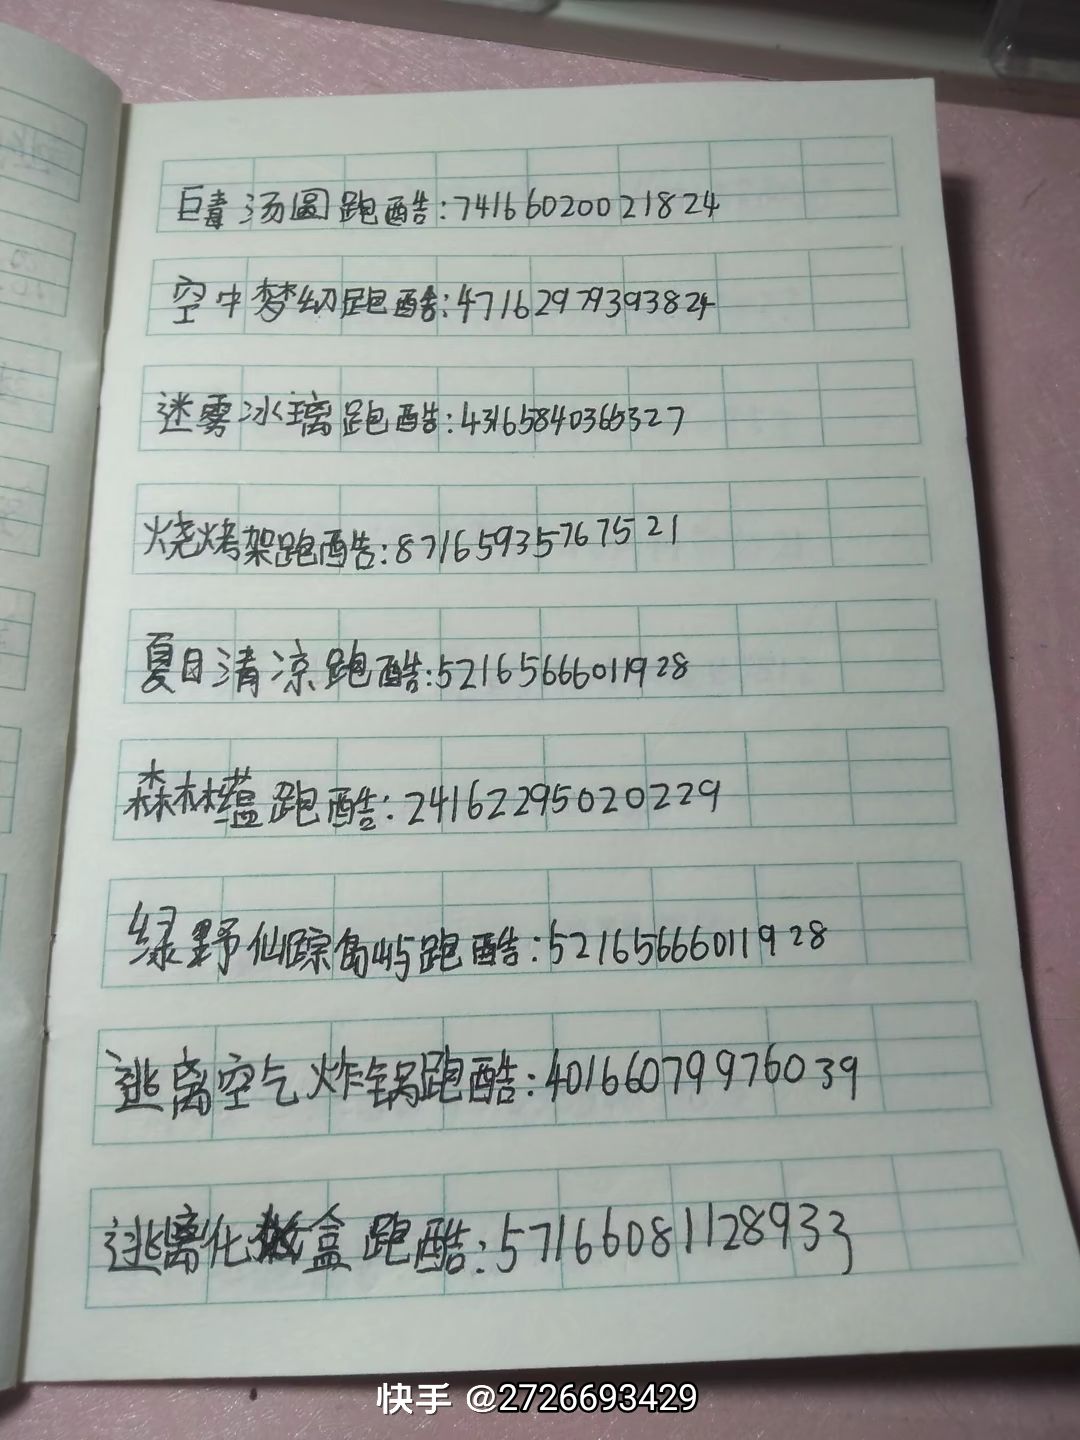 巨毒汤圆跑酷:74166020021824
空中梦幻跑酷:47162979393824
迷雾冰璃跑酷:43165840365327
烧烤架跑酷:87165935767521
夏日清凉跑酷:52165666011928
森林蕴跑酷:24162295020229
绿野仙踪岛屿跑酷:52165666011928
逃离空气炸锅跑酷:40166079976039
逃离化妆盒跑酷:57166081128933
快手 @2726693429